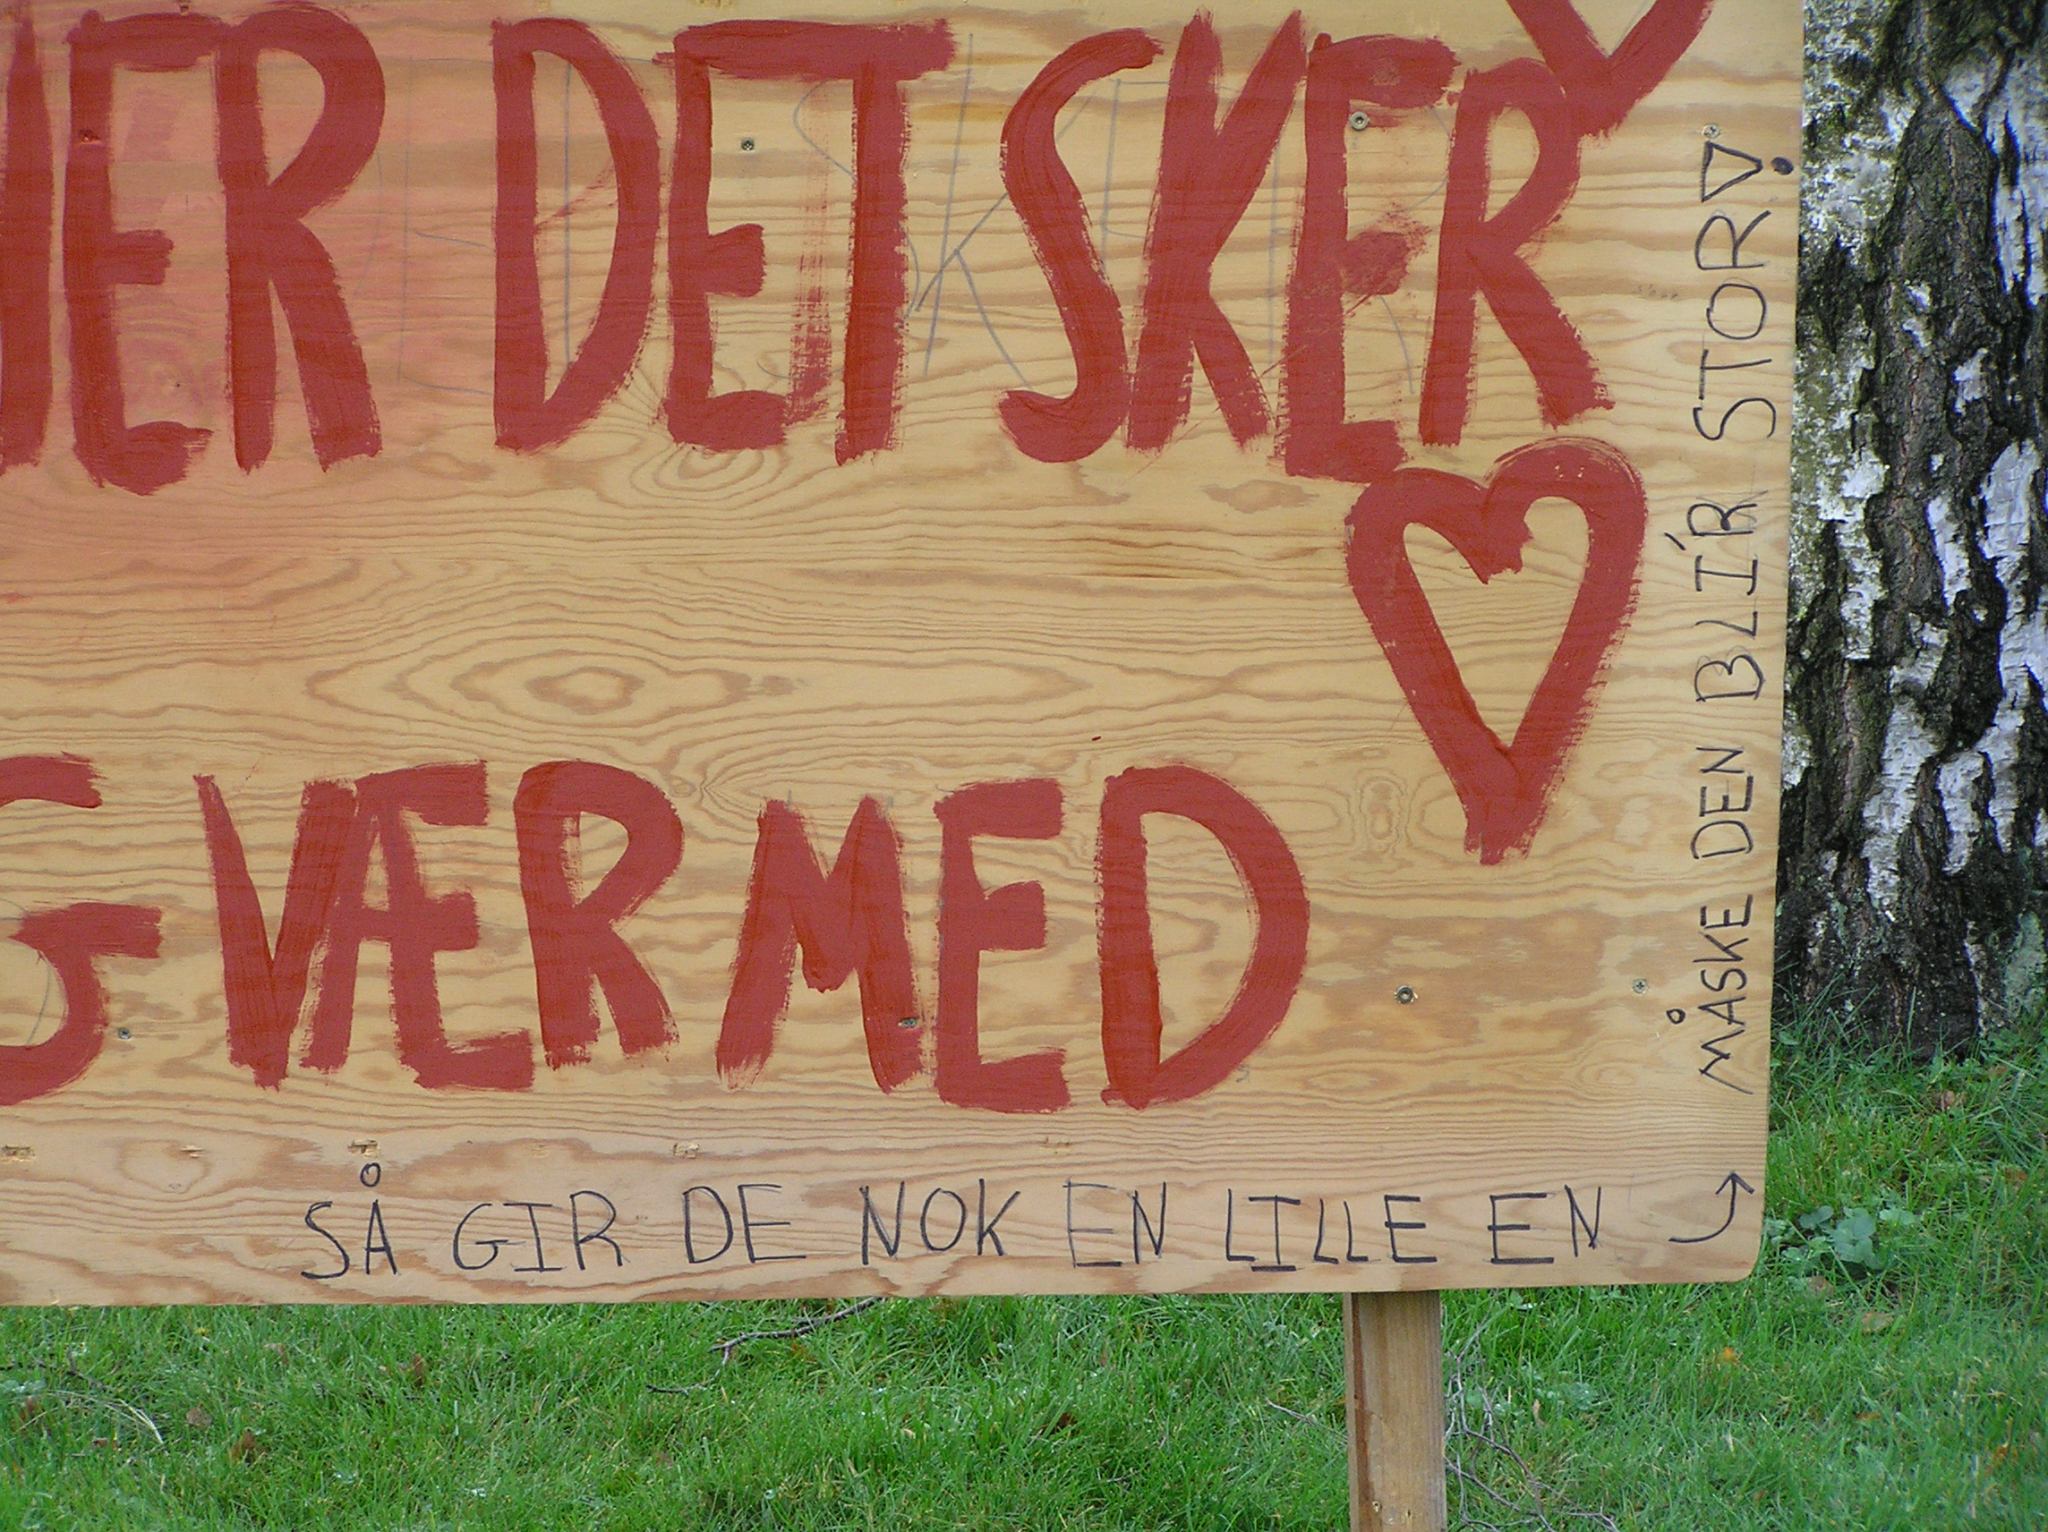 HER DET SKER
G VÆR MED
SÅ GIR DE NOK EN LILLE EN
MÅSKE DEN BLÍR STOR!